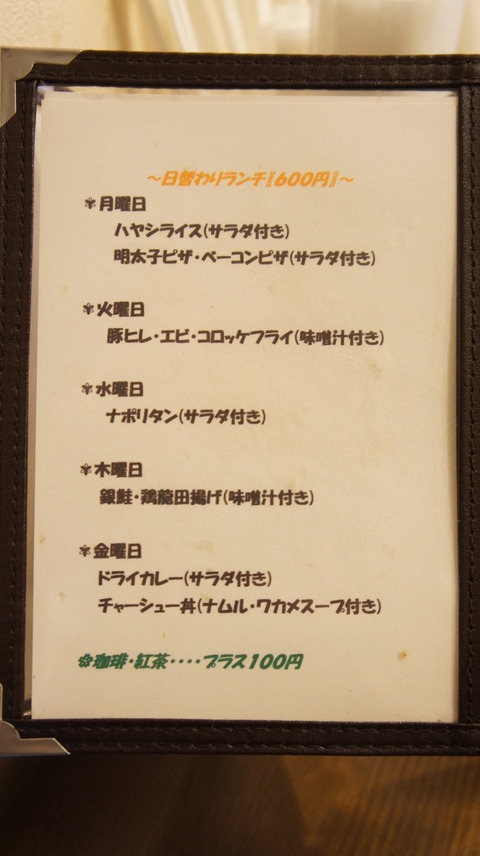 ～日替わりランチ『600円』～
✾月曜日
ハヤシライス(サラダ付き)
明太子ピザ・ベーコンピザ(サラダ付き)
✾火曜日
豚ヒレ・エビ・コロッケフライ(味噌汁付き)
✾水曜日
ナポリタン(サラダ付き)
✾木曜日
銀鮭・鶏龍田揚げ(味噌汁付き)
✾金曜日
ドライカレー(サラダ付き)
チャーシュー丼(ナムル・ワカメスープ付き)
✿珈琲・紅茶・・・・プラス100円